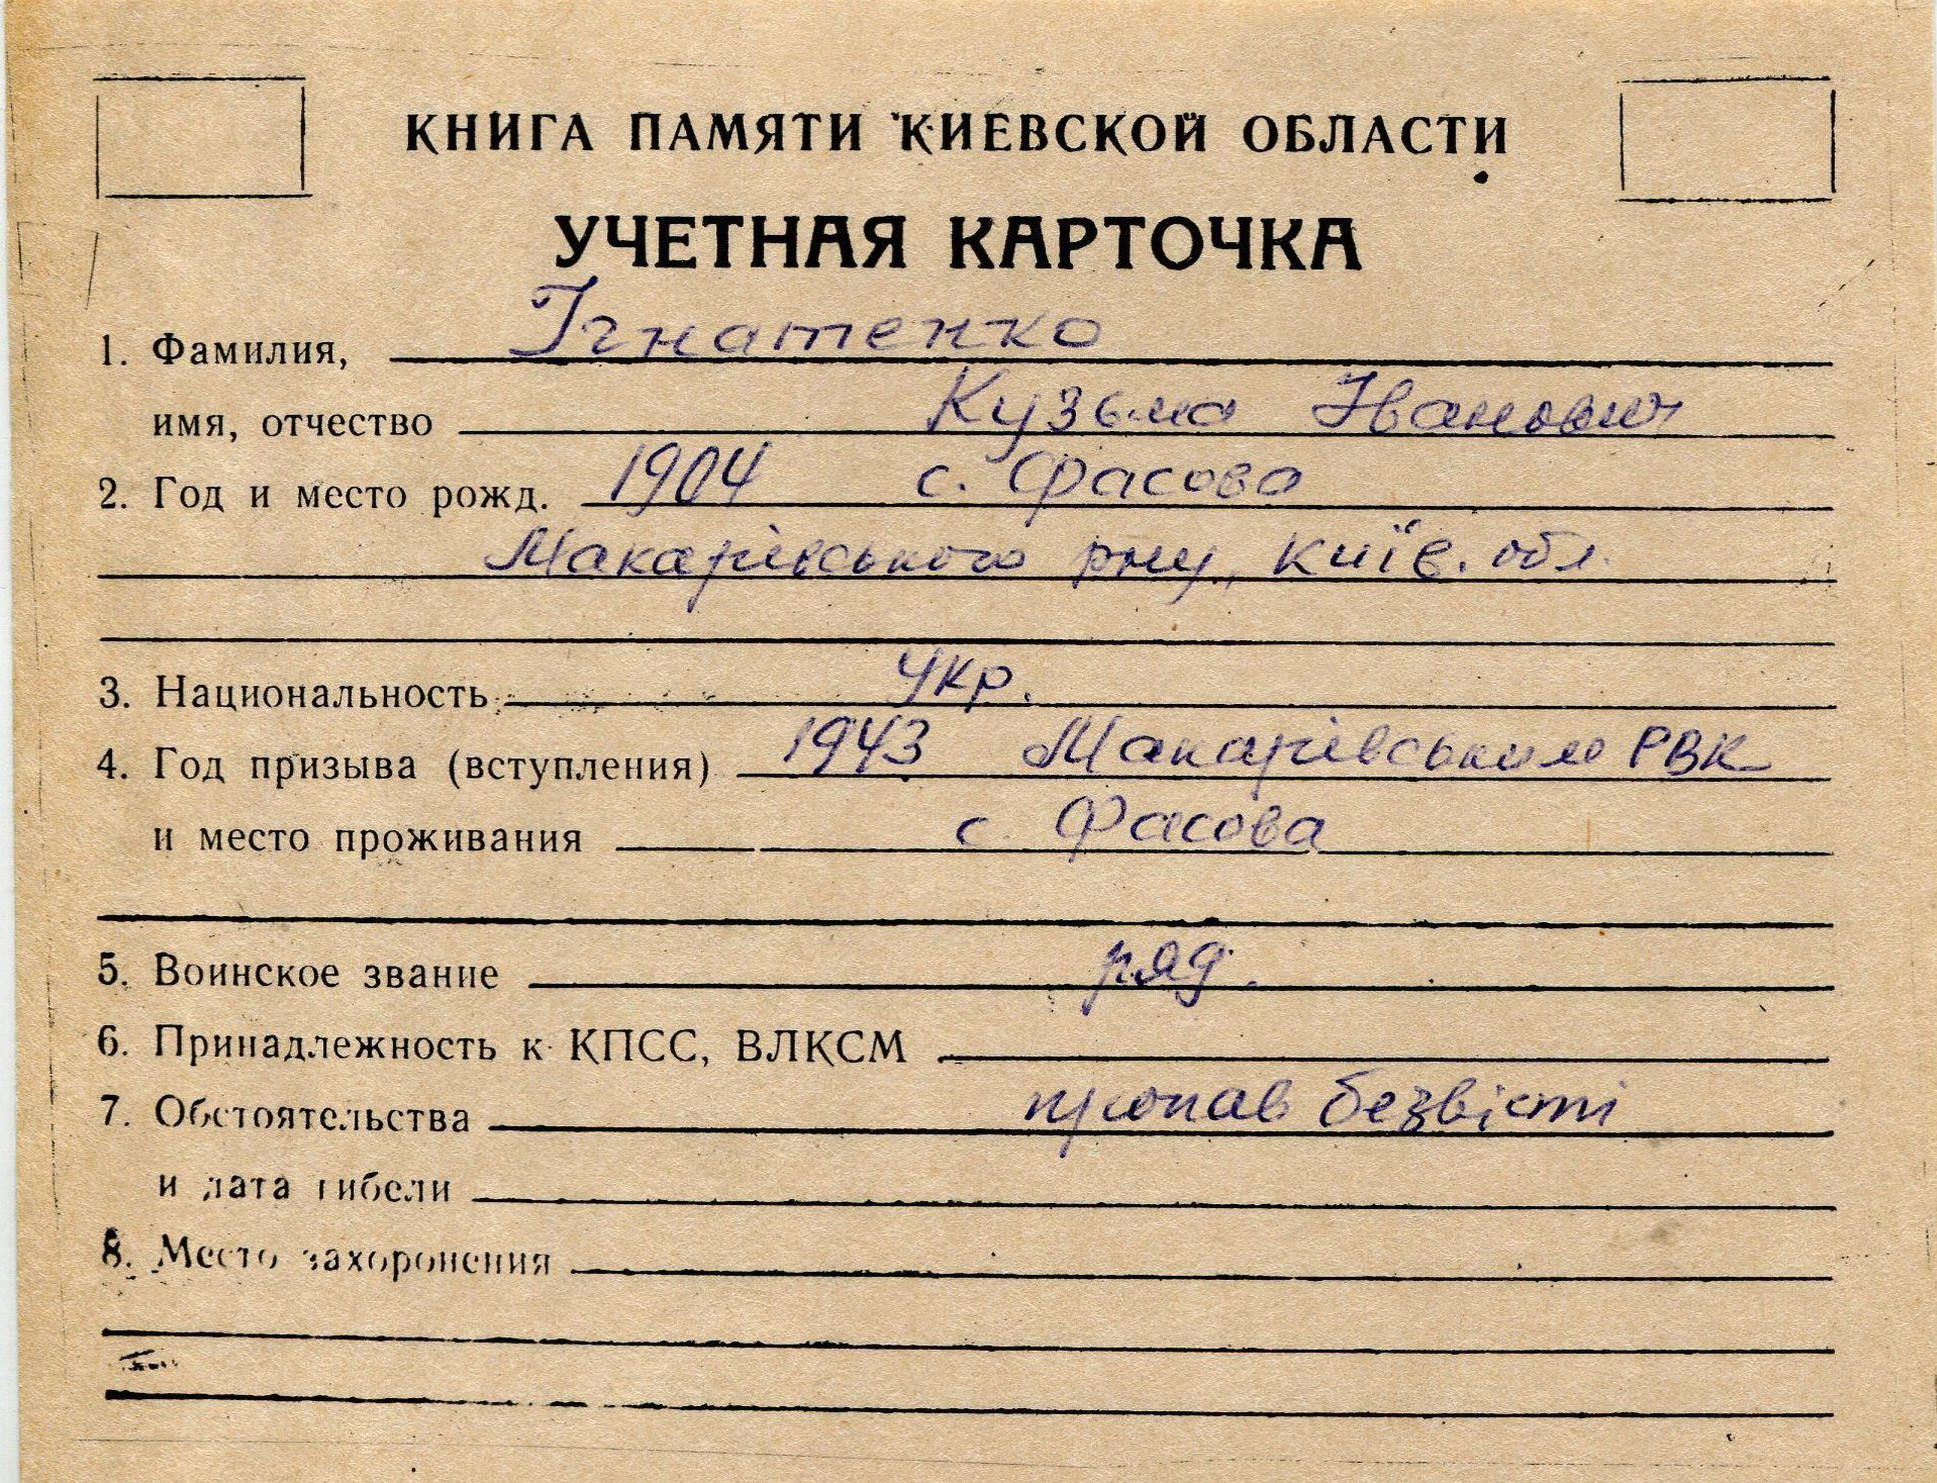 КНИГА ПАМЯТИ КИЕВСКОЙ ОБЛАСТИ
УЧЕТНАЯ КАРТОЧКА
1. Фамилия, Ігнатенко
имя, отчество Кузьма Іванович
2. Год и место рожд. 1904 с. Фасова
Макарівського р-ну, Київ. обл.
3. Национальность Укр.
4. Год призыва (вступления) 1943 Макарівським РВК
и место проживания с. Фасова
5. Воинское звание ряд.
6. Принадлежность к КПСС, ВЛКСМ
7. Обстоятельства пропав безвісті
и дата гибели
8. Место захоронения